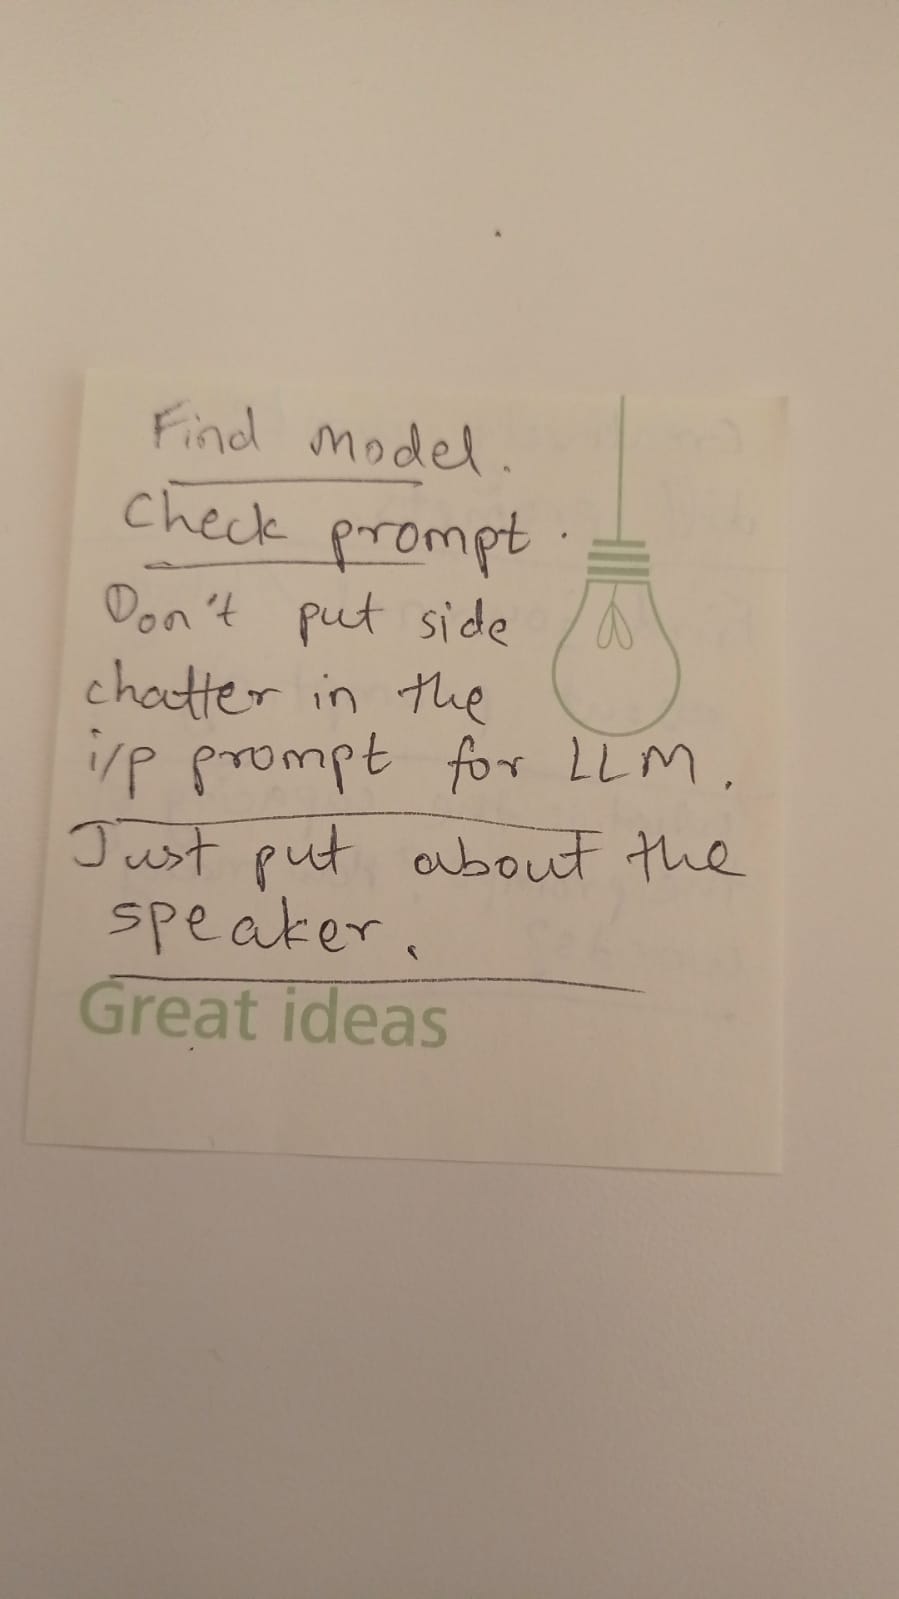 Find model.
Check prompt.
Don't put side
chatter in the
i/p prompt for LLM.
Just put about the
speaker.
Great ideas